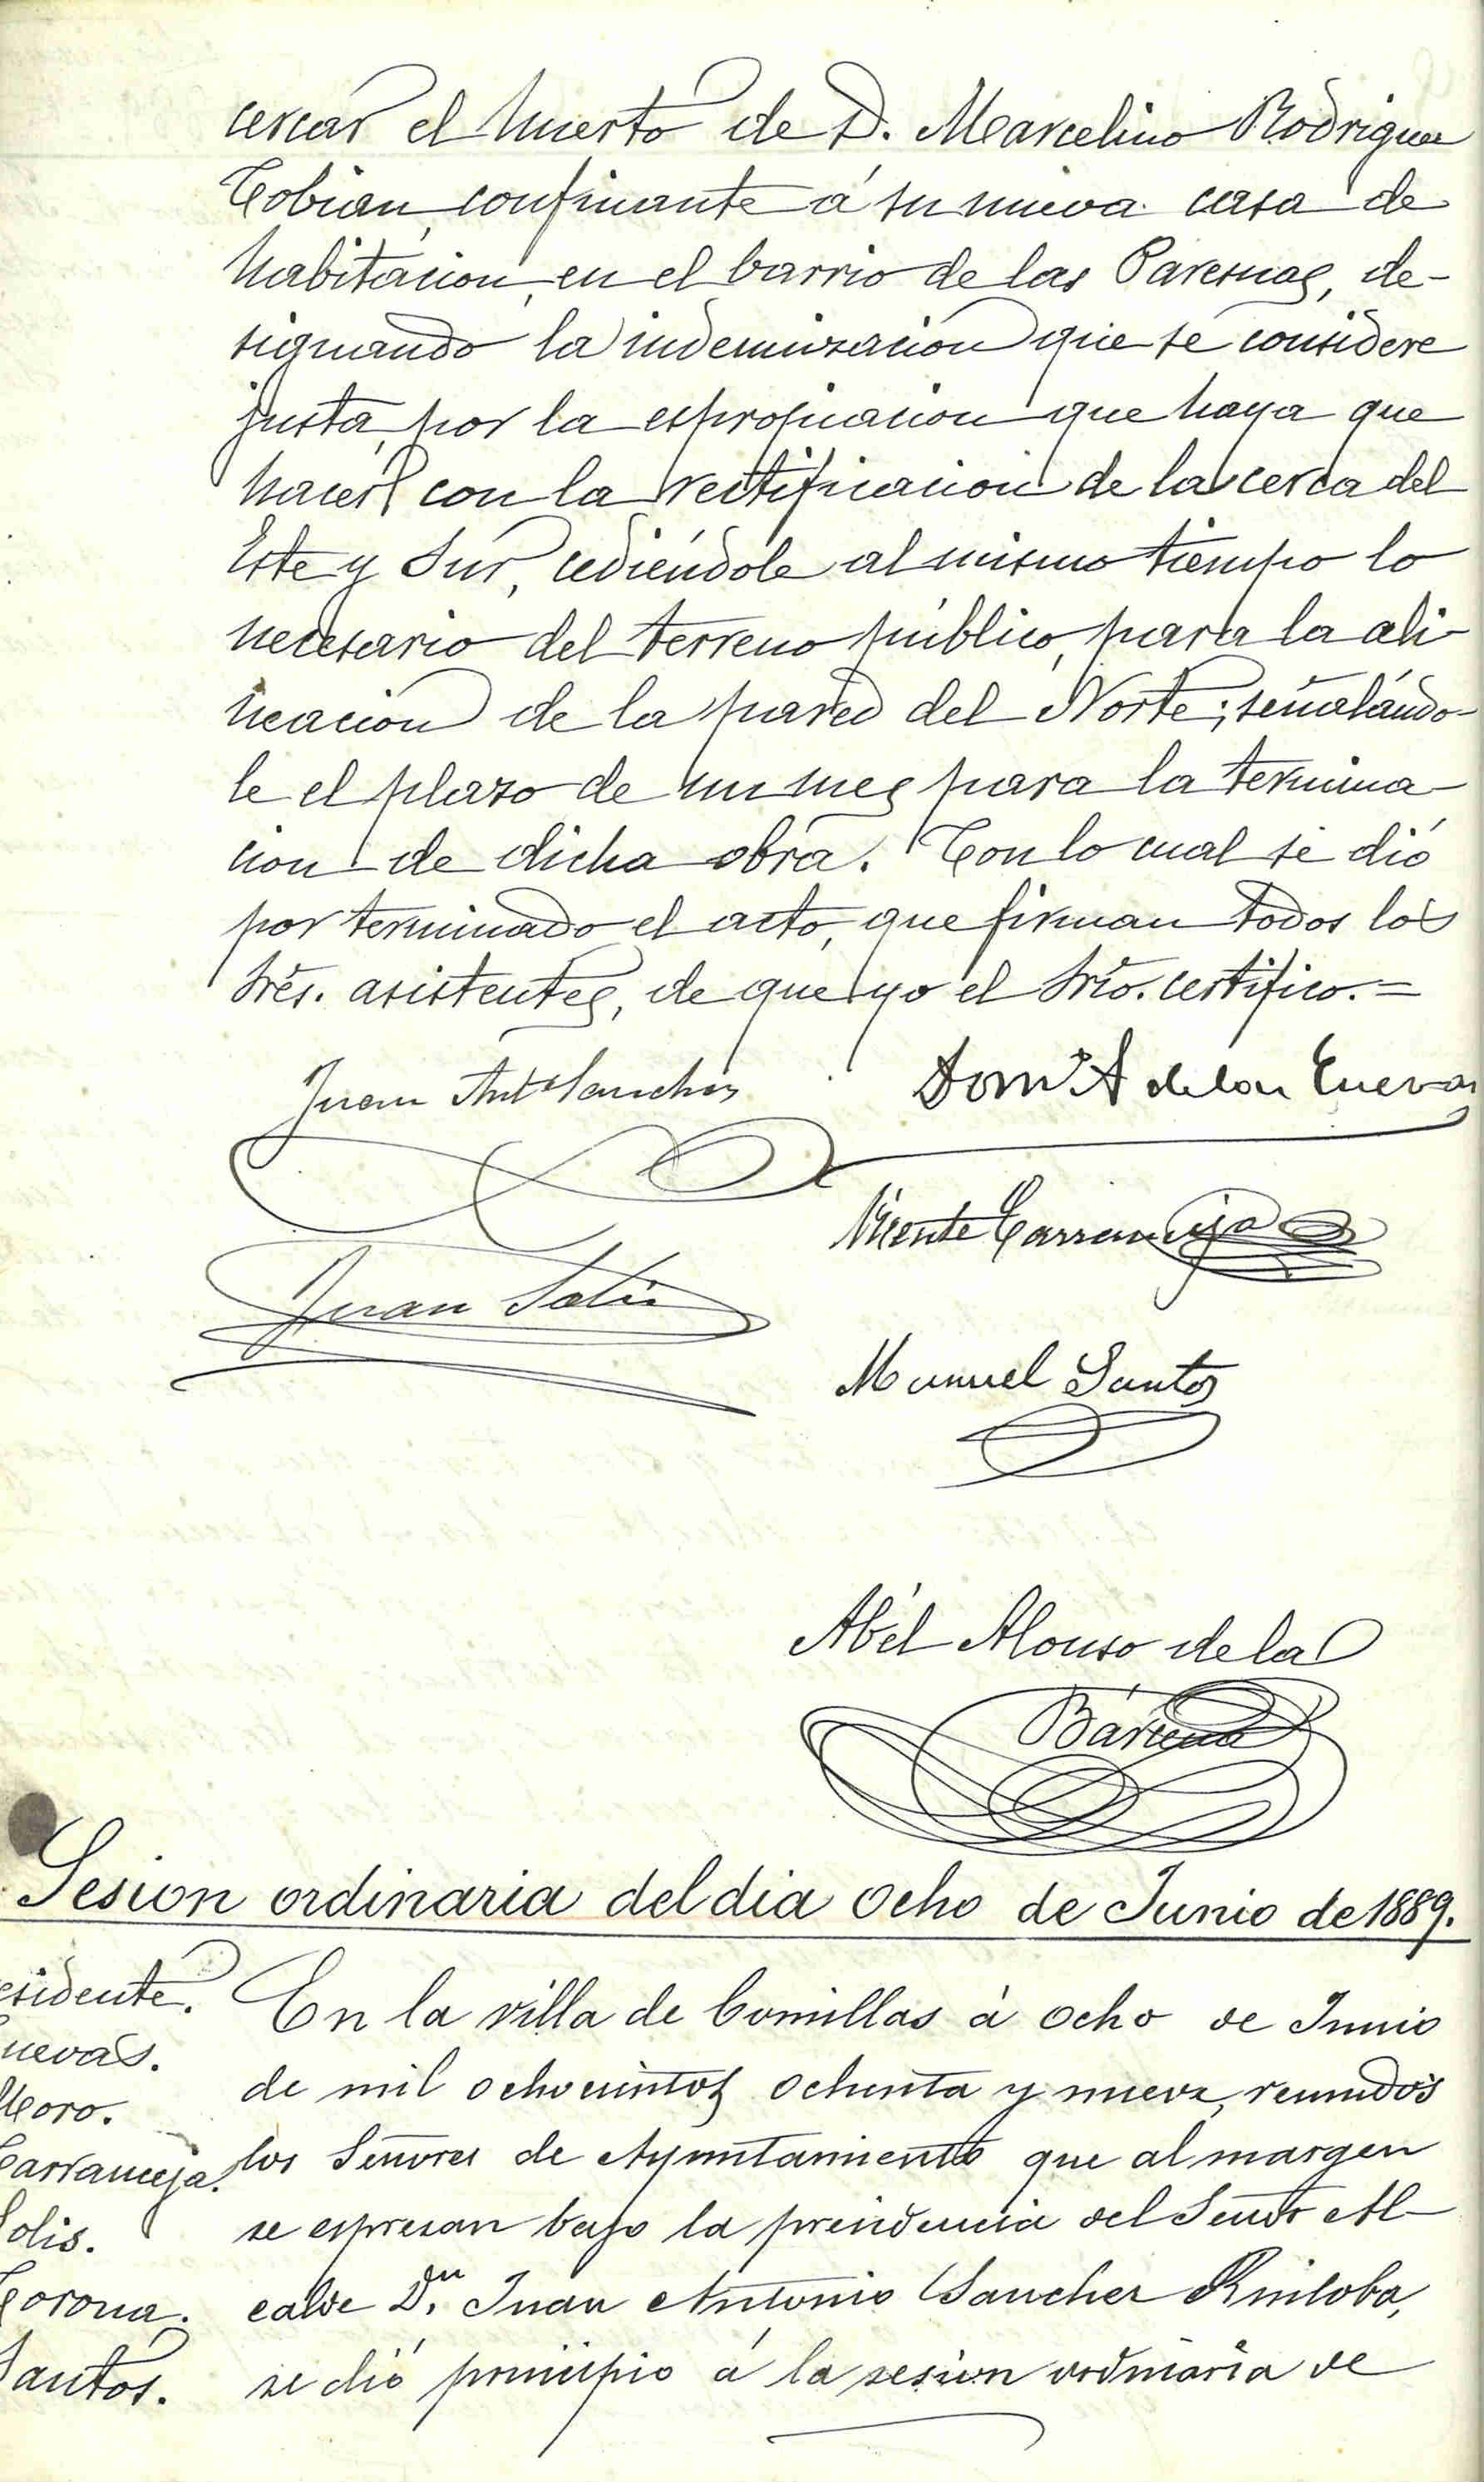 cercar el huerto de D. Marcelino Rodriguez
Cobian, confinante á su nueva casa de
habitacion, en el barrio de las Paresnas, de-
signando la indemnizacion que se considere
justa, por la espropiacion que haya que
hacer con la rectificacion de la cerca del
Este y Sur, cediéndole al mismo tiempo lo
necesario del terreno público, para la ali-
neacion de la pared del Norte; señalándo-
le el plazo de un mes para la termina-
cion de dicha obra. Con lo cual se dió
por terminado el acto, que firman todos los
Sres. asistentes, de que yo el Srio. certifico.=
Juan Ant.º Sanchez
Dom.º A de las Cuevas
Vicente Carranceja
Juan Solis
Manuel Santos
Abél Alonso de la
Bárcena
Sesion ordinaria del dia ocho de Junio de 1889.
esidente.
uevas.
Moro.
Carranceja.
Solis.
Corona.
Santos.
En la villa de Comillas á ocho de Junio
de mil ochocientos ochenta y nueve, reunidos
los Señores de Ayuntamiento que al margen
se espresan bajo la presidencia del Señor Al-
calde Dn. Juan Antonio Sanchez Ruiloba,
se dió principio á la sesion ordinaria de